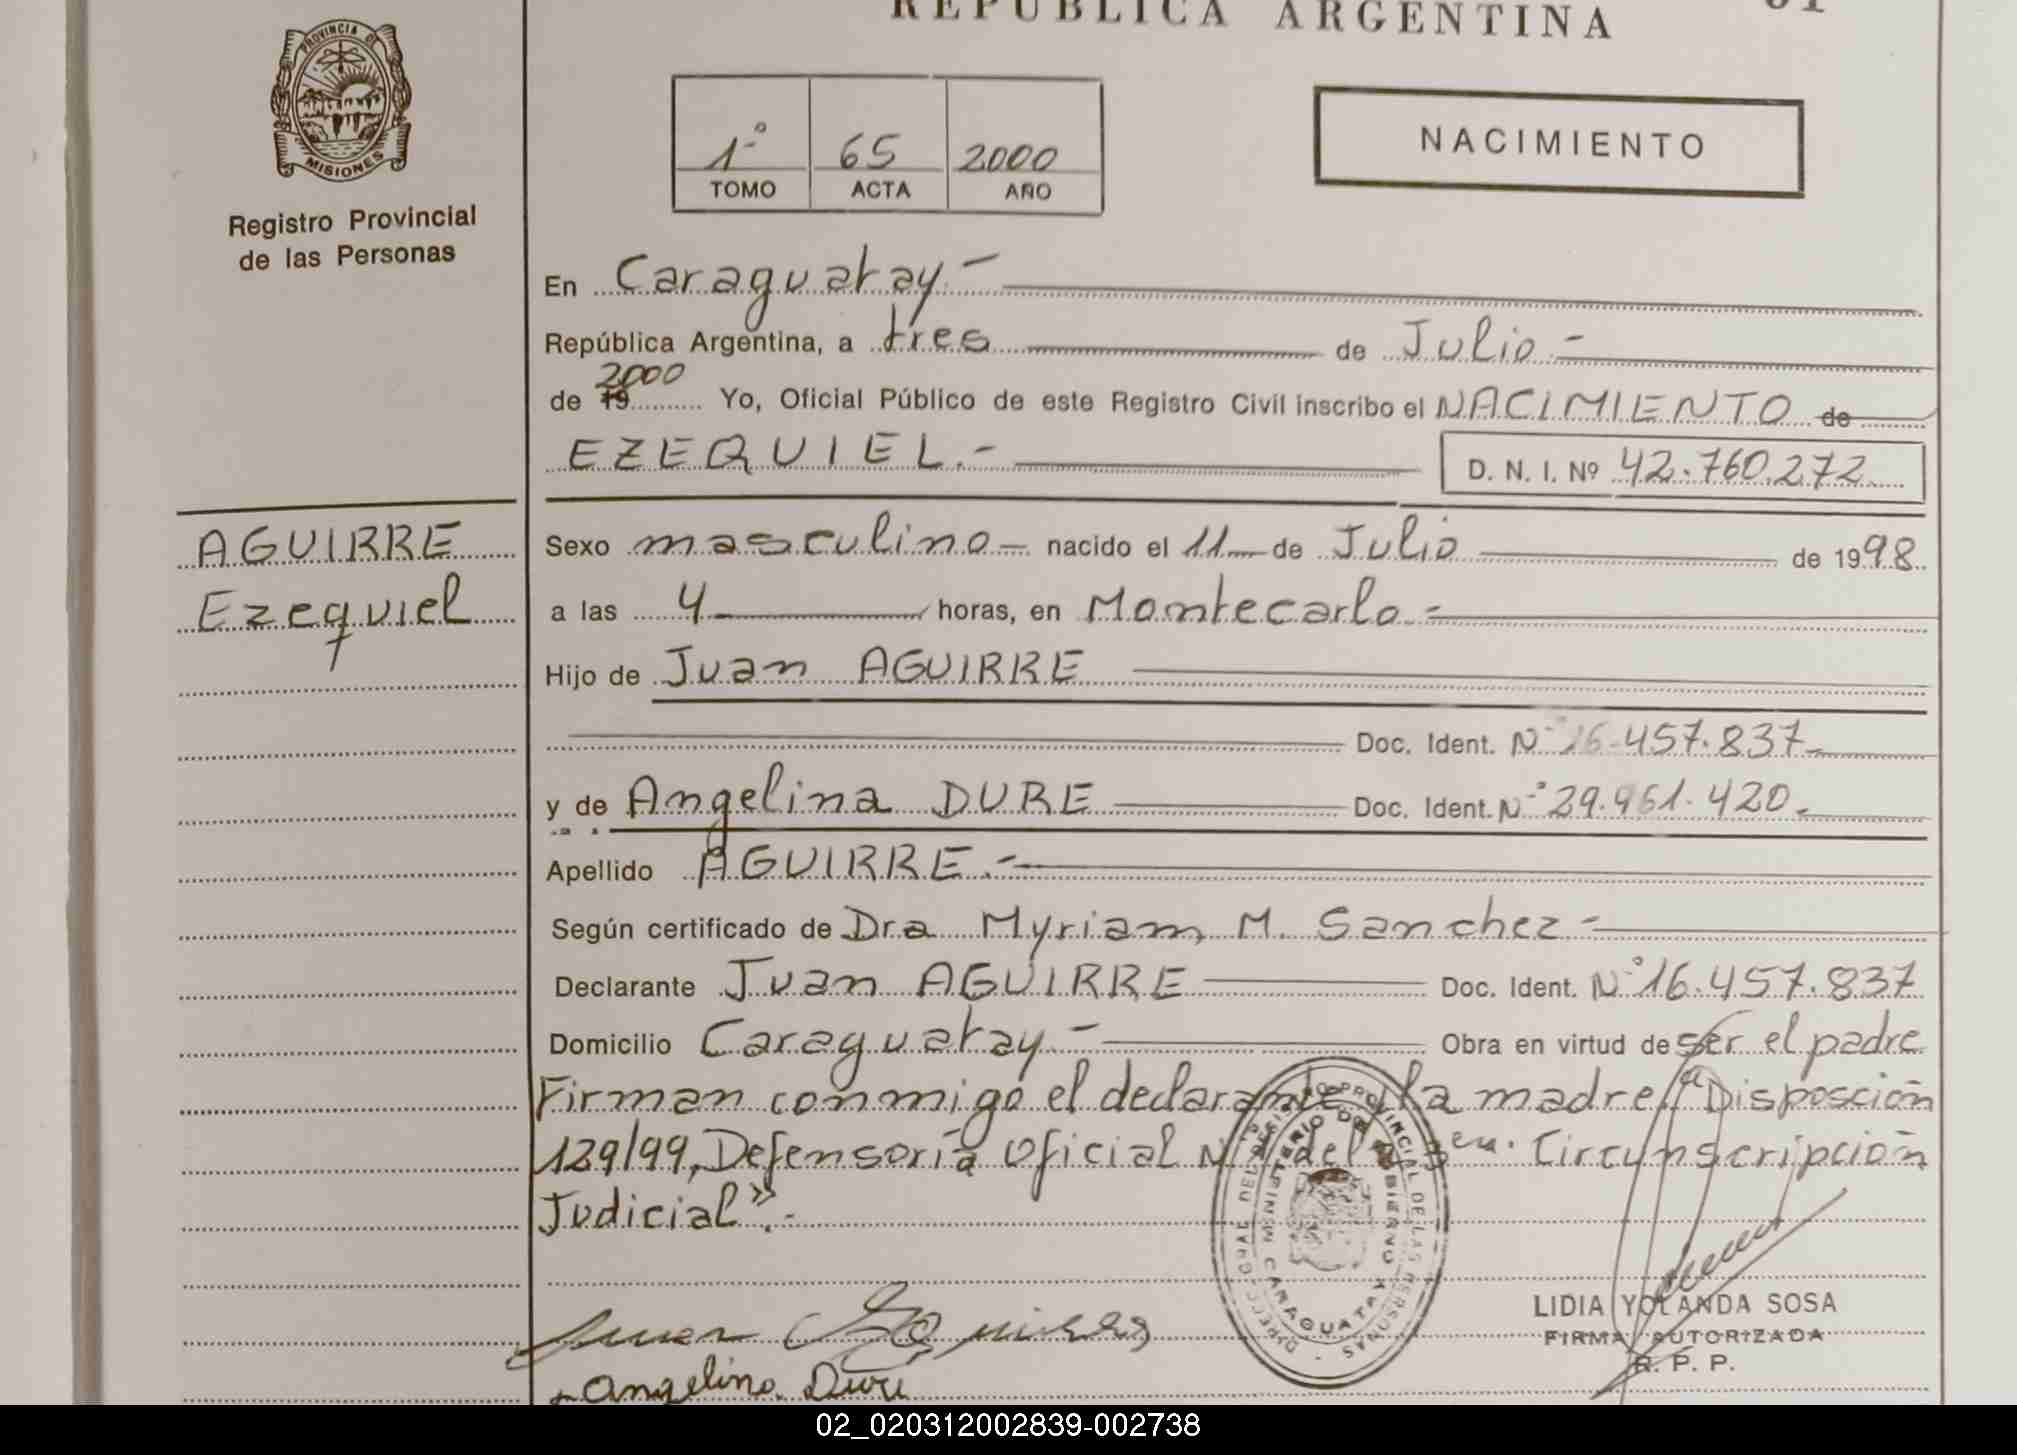 REPUBLICA ARGENTINA
PROVINCIA DE
MISIONES
Registro Provincial
de las Personas
1º 65 2000
TOMO ACTA AÑO
NACIMIENTO
En Caraguatay.-
República Argentina, a tres de Julio.-
de 19 2000 Yo, Oficial Público de este Registro Civil inscribo el NACIMIENTO de
EZEQUIEL.-
D. N. I. Nº 42.760.272
AGUIRRE
Ezequiel
Sexo masculino- nacido el 11 de Julio de 1998.
a las 4 horas, en Montecarlo.-
Hijo de Juan AGUIRRE
Doc. Ident. Nº 16.457.837-
y de Angelina DURE Doc. Ident. Nº 29.961.420.-
Apellido AGUIRRE.-
Según certificado de Dra Myriam M. Sanchez-
Declarante Juan AGUIRRE Doc. Ident. Nº 16.457.837
Domicilio Caraguatay.- Obra en virtud de ser el padre
Firman conmigo el declarante y la madre. "Disposción
129/99, Defensoría Oficial Nº del Circunscripción
Judicial".-
Juan Aguirre
Angelina Dure
LIDIA YOLANDA SOSA
FIRMA AUTORIZADA
R. P. P.
02_020312002839-002738